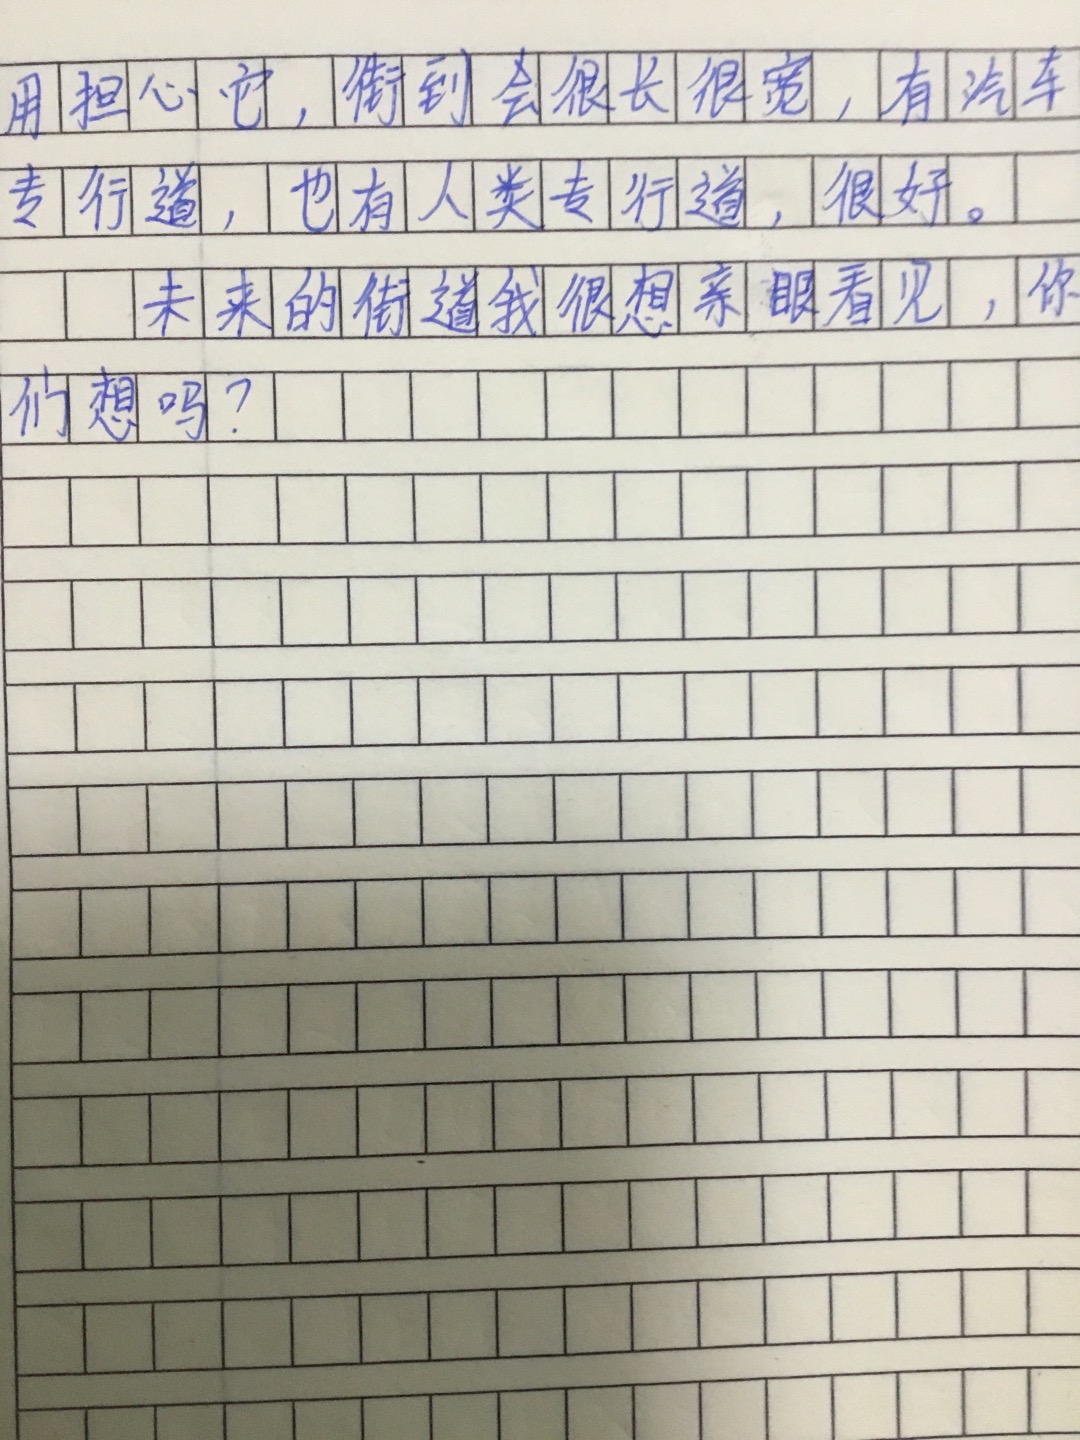 用担心它，街到会很长很宽，有汽车
专行道，也有人类专行道，很好。
未来的街道我很想亲眼看见，你
们想吗？